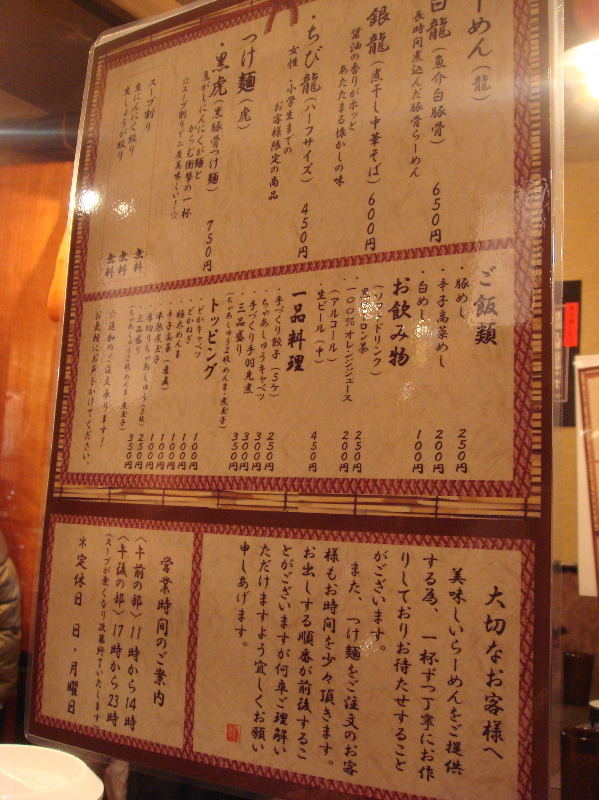 らーめん(龍)
白龍(魚介白豚骨) 650円
長時間煮込んだ豚骨らーめん
銀龍(煮干し中華そば) 600円
醤油の香りがホッと
あたたまる懐かしの味
・ちび龍(ハーフサイズ) 450円
女性・小学生までの
お客様限定の商品
つけ麺(虎)
・黒虎(黒豚骨つけ麺) 750円
焦がしにんにくが麺と
からむ衝撃の一杯
☆スープ割りで二度美味しい!☆
スープ割り 無料
生にんにく絞り 無料
生しょうが絞り 無料
ご飯類
・豚めし 250円
・辛子高菜めし 200円
・白めし 100円
お飲み物
(ソフトドリンク)
・黒ウーロン茶 250円
・100%オレンジジュース 200円
(アルコール)
・生ビール(中) 450円
一品料理
・手づくり餃子(5ケ) 250円
・ちゃあしゅうキャベツ 300円
・手づくり手羽先煮 300円
・三品盛り 350円
(ちゃあしゅう2枚・めんま・煮玉子)
トッピング
・どかキャベツ 100円
・どかねぎ 100円
・極太めんま 100円
・辛子高菜 100円
・半熟煮玉子 100円
・厚切りちゃあしゅう(3枚) 250円
・三品盛り 350円
(ちゃあしゅう2枚・めんま・煮玉子)
☆追加のご注文承ります!
お気軽にお声をかけてください。
大切なお客様へ
美味しいらーめんをご提供
する為、一杯ずつ丁寧にお作
りしておりお待たせすること
がございます。
また、つけ麺をご注文のお客
様もお時間を少々頂きます。
お出しする順番が前後するこ
とがございますが何卒ご理解い
ただけますよう宜しくお願い
申しあげます。
営業時間のご案内
〈午前の部〉11時から14時
〈午後の部〉17時から23時
(スープが無くなり次第終了いたします)
*定休日 日・月曜日